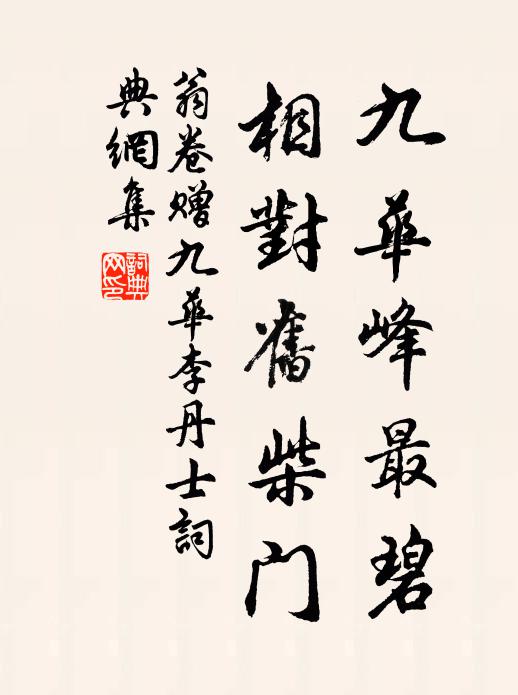 九華峰最碧
相對舊柴门
翁卷赠九華李丹士詞
典網集
詞典
网印